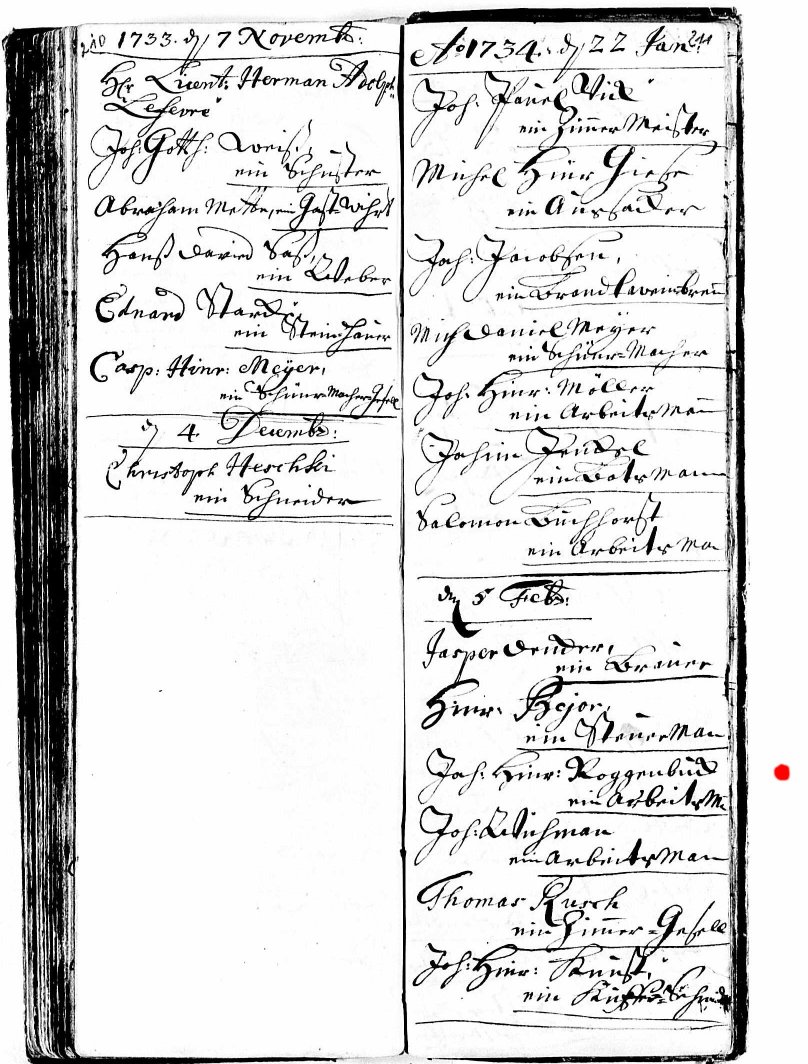 210 1733. dẏ 7 Novembr:
Hr Lieut: Herman Adolph
Lefevre
Joh: Gotth: Weiß,
ein Schuster
Abraham Mette, ein Gast=Wihrt
Hanß David Saß,
ein Weber
Eduard Stard
ein Steinhauer
Casp: Hinr: Meÿer,
ein Schnur=Macher=Gesell
dẏ 4. Decembr:
Christoph Heschki
ein Schneider
Ao 1734. dẏ 22 Jan: 211
Joh: Pauel Vick
ein Zimmer Meister
Michel Hinr Giese
ein
Joh: Jacobsen,
ein
Mich Daniel Meyer
ein Schnur=Macher
Joh: Hinr: Möller
ein Arbeits Man
Jochim
ein Bots Mann
Salomon Buchhorst
ein Arbeits Ma
den 5 Feb:
Jasper
ein Brauer
Hinr: Bejor,
ein Steuer Man
Joh: Hinr: Roggenbuck
ein Arbeits M
Joh: Wichman
ein Arbeits Man
Thomas Rusch
ein Zimmer=Gesell
Joh: Hinr: Kunst,
ein Kupfer=Schmid